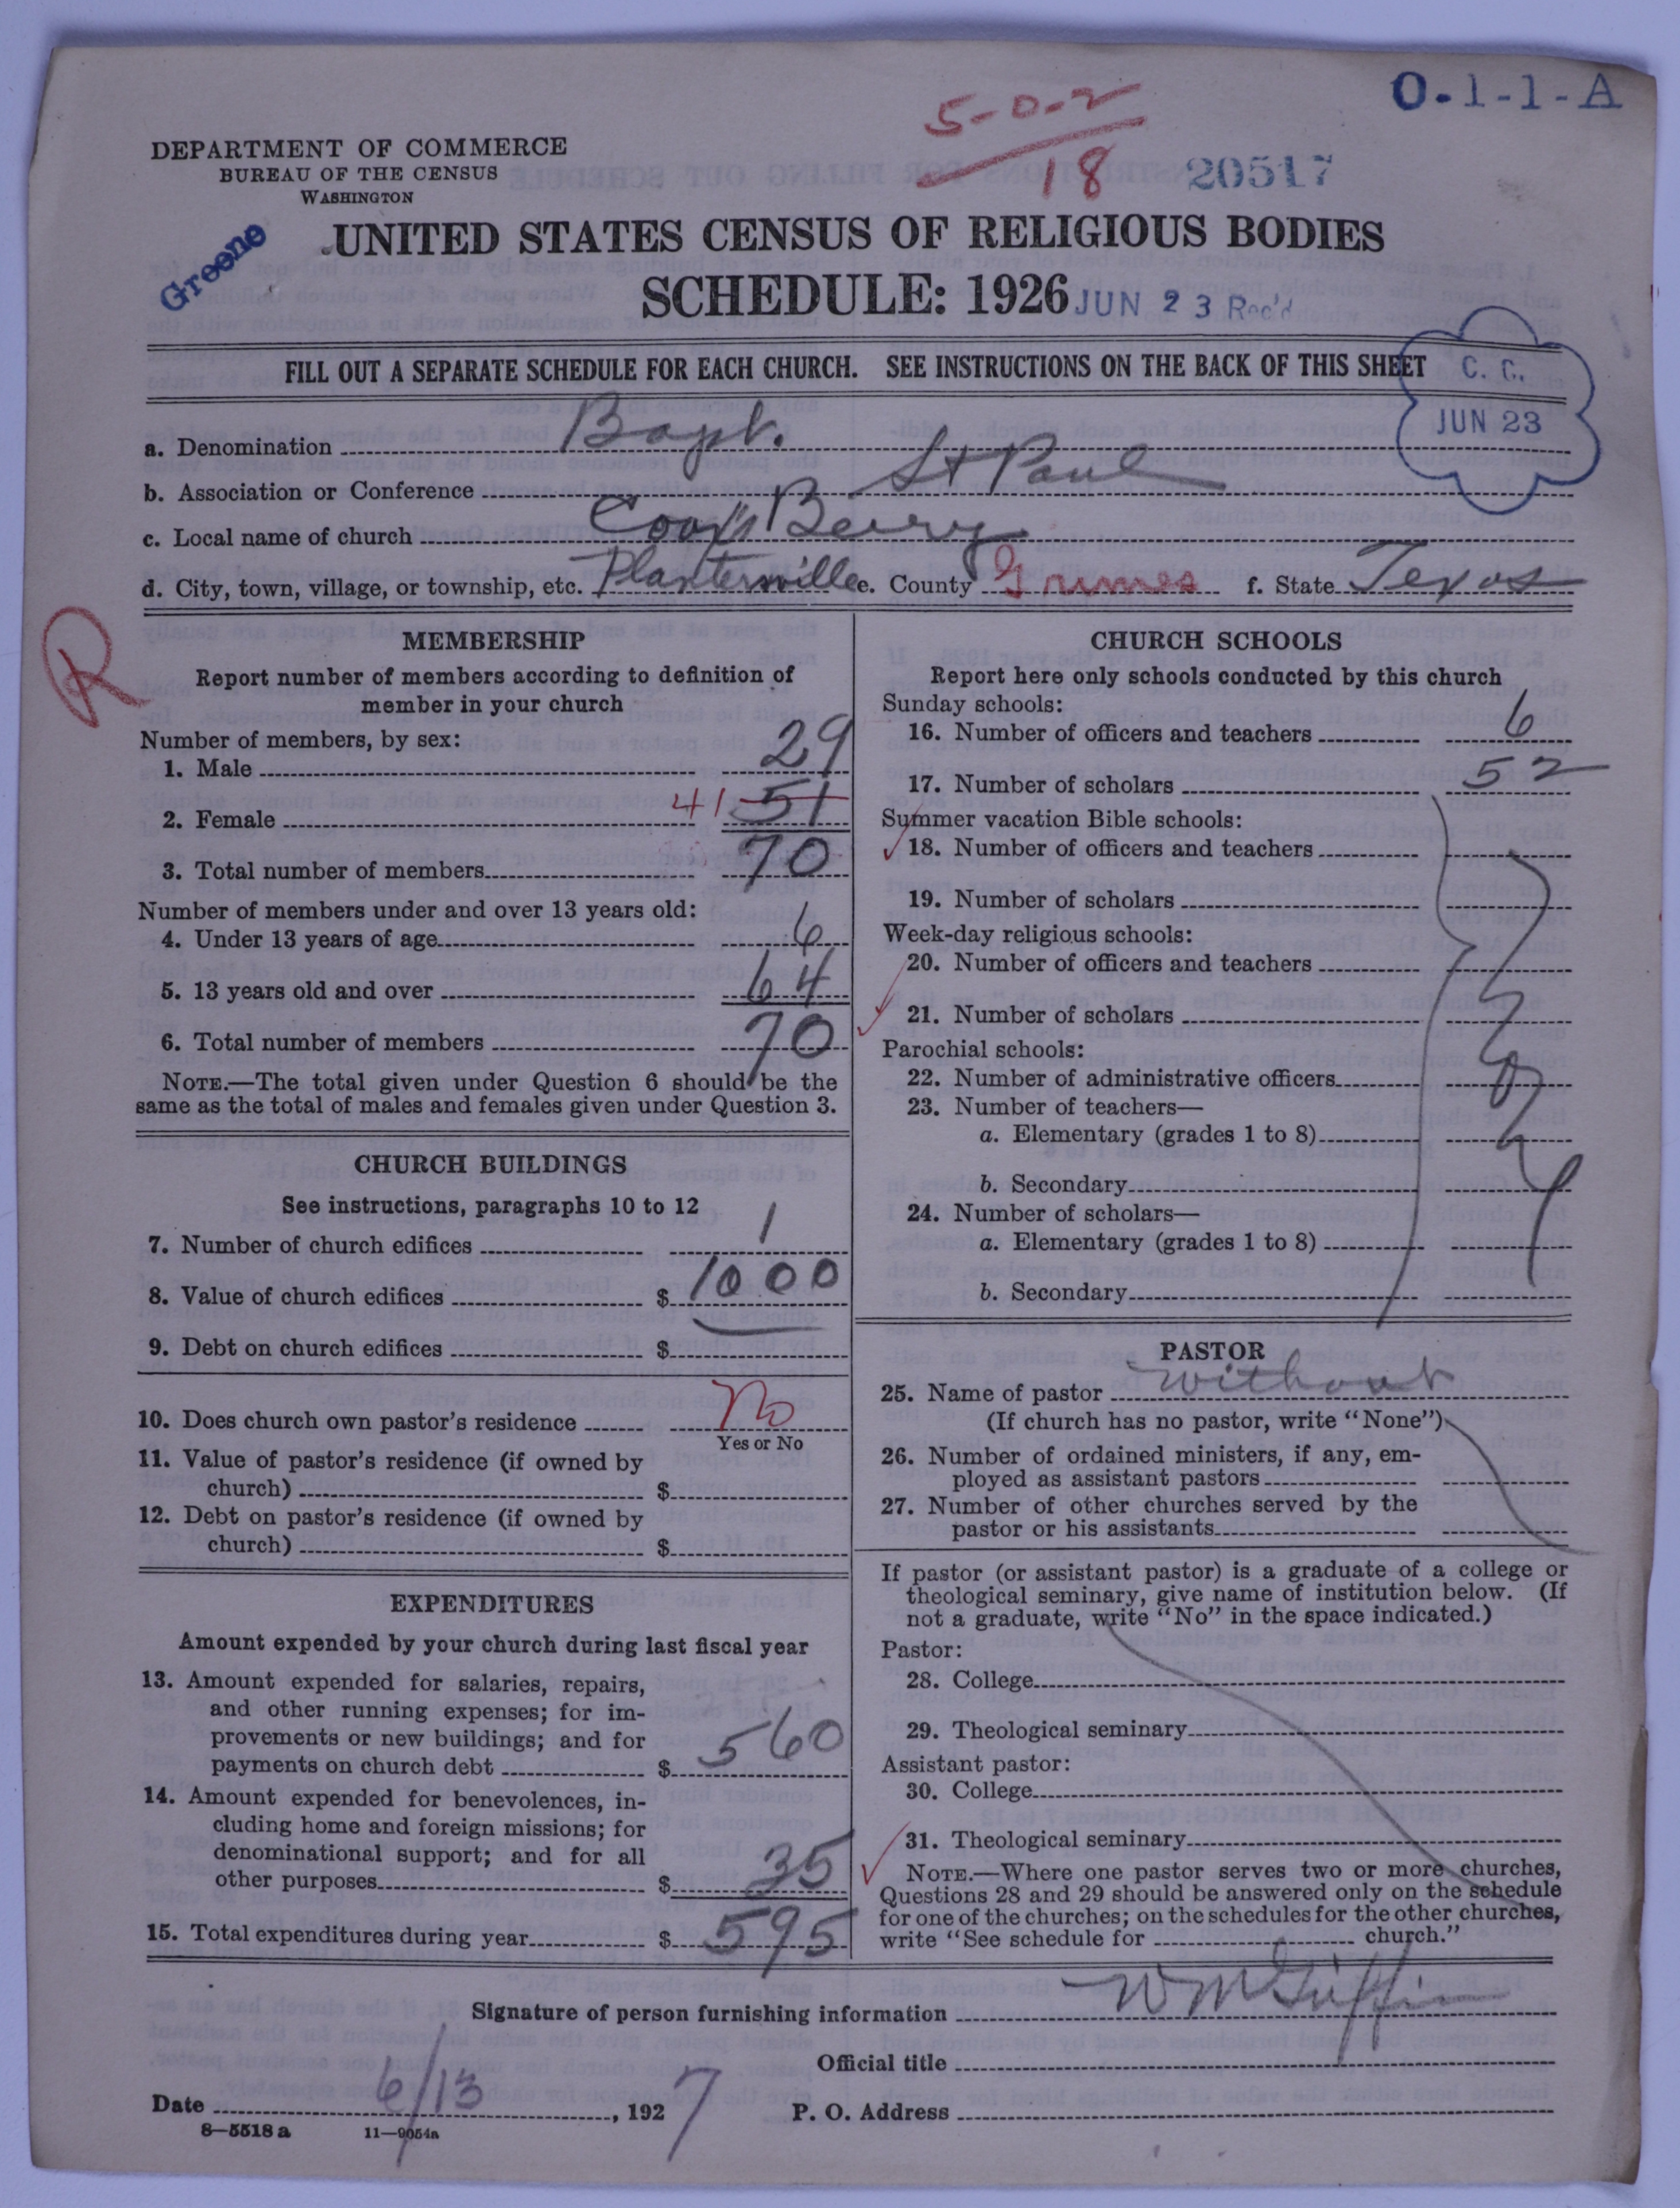 O-1-1-A
5-0-2
18
20517
DEPARTMENT OF COMMERCE
BUREAU OF THE CENSUS
WASHINGTON
Greene
UNITED STATES CENSUS OF RELIGIOUS BODIES
SCHEDULE: 1926
JUN 23 Rec'd
FILL OUT A SEPARATE SCHEDULE FOR EACH CHURCH. SEE INSTRUCTIONS ON THE BACK OF THIS SHEET
C. C.
JUN 23
a. Denomination Bapt.
b. Association or Conference St Paul
c. Local name of church Berry
d. City, town, village, or township, etc. Plantersville e. County Grimes f. State Texas
R
MEMBERSHIP
Report number of members according to definition of
member in your church
Number of members, by sex:
1. Male 29
2. Female 41 51
3. Total number of members 70
Number of members under and over 13 years old:
4. Under 13 years of age 6
5. 13 years old and over 64
6. Total number of members 70
NOTE.—The total given under Question 6 should be the
same as the total of males and females given under Question 3.
CHURCH BUILDINGS
See instructions, paragraphs 10 to 12
7. Number of church edifices 1
8. Value of church edifices $ 1000
9. Debt on church edifices $
10. Does church own pastor's residence No
Yes or No
11. Value of pastor's residence (if owned by
church) $
12. Debt on pastor's residence (if owned by
church) $
EXPENDITURES
Amount expended by your church during last fiscal year
13. Amount expended for salaries, repairs,
and other running expenses; for im-
provements or new buildings; and for
payments on church debt $ 560
14. Amount expended for benevolences, in-
cluding home and foreign missions; for
denominational support; and for all
other purposes $ 35
15. Total expenditures during year $ 595
CHURCH SCHOOLS
Report here only schools conducted by this church
Sunday schools:
16. Number of officers and teachers 6
17. Number of scholars 52
Summer vacation Bible schools:
18. Number of officers and teachers
19. Number of scholars
Week-day religious schools:
20. Number of officers and teachers
21. Number of scholars
Parochial schools:
22. Number of administrative officers
23. Number of teachers—
a. Elementary (grades 1 to 8)
b. Secondary
24. Number of scholars—
a. Elementary (grades 1 to 8)
b. Secondary
PASTOR
25. Name of pastor without
(If church has no pastor, write "None")
26. Number of ordained ministers, if any, em-
ployed as assistant pastors
27. Number of other churches served by the
pastor or his assistants
If pastor (or assistant pastor) is a graduate of a college or
theological seminary, give name of institution below. (If
not a graduate, write "No" in the space indicated.)
Pastor:
28. College
29. Theological seminary
Assistant pastor:
30. College
31. Theological seminary
NOTE.—Where one pastor serves two or more churches,
Questions 28 and 29 should be answered only on the schedule
for one of the churches; on the schedules for the other churches,
write "See schedule for church."
Signature of person furnishing information W M Griffin
Official title
Date 6/13, 1927 P. O. Address
8—5518 a 11—9054a